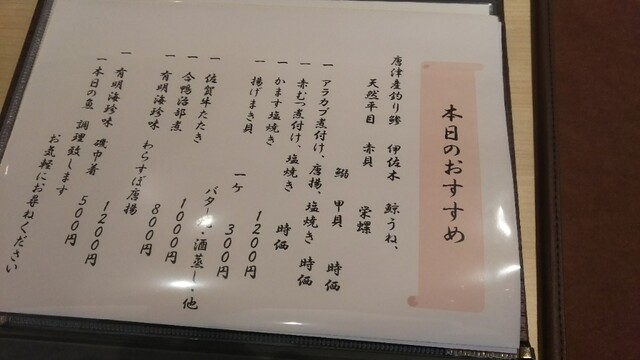 本日のおすすめ
唐津産釣り鯵 伊佐木 鯨うね、
天然平目 赤貝 栄螺
鰤 甲貝 時価
一 アラカブ煮付け、唐揚、塩焼き 時価
一 赤むつ煮付け、塩焼き 時価
一 かます塩焼き 1200円
一 揚げまき貝 一ケ 300円
バター焼・酒蒸し・他
一 佐賀牛たたき 1000円
一 合鴨治部煮 800円
一 有明海珍味 わらすぼ唐揚 1200円
一 有明海珍味 磯巾着 500円
一 本日の魚 調理致します
お気軽にお尋ねください